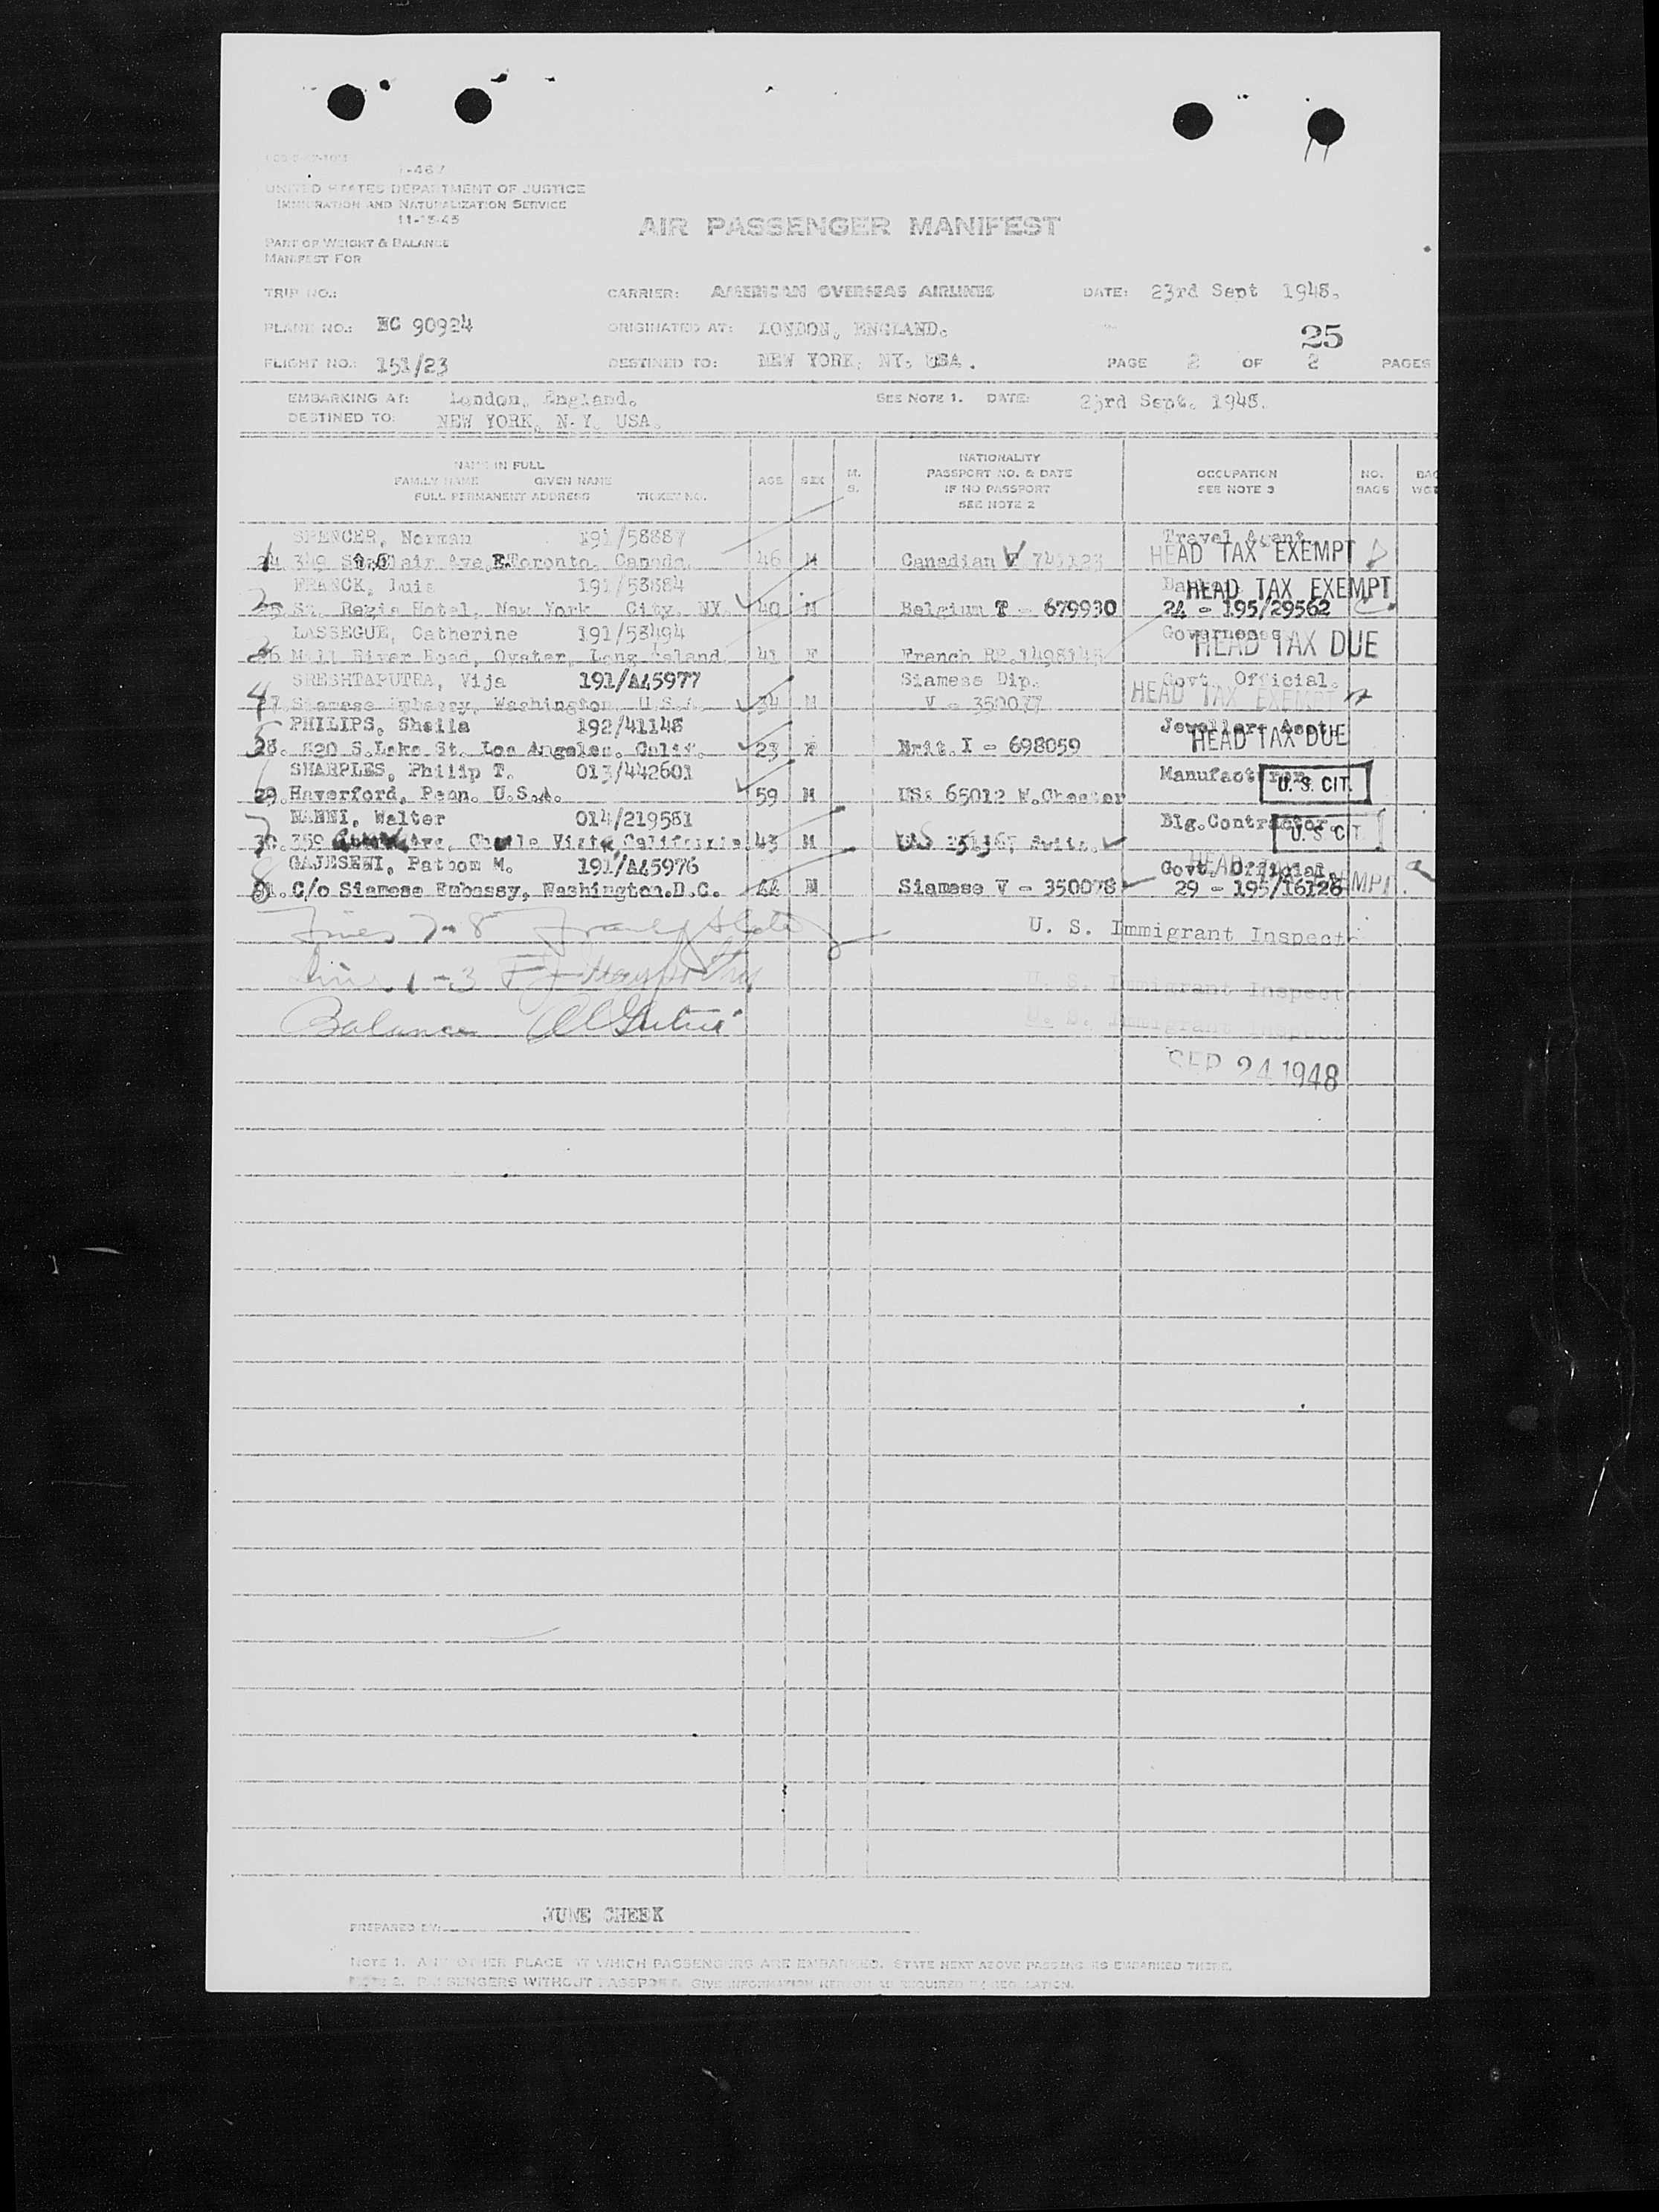 I-467
UNITED STATES DEPARTMENT OF JUSTICE
IMMIGRATION AND NATURALIZATION SERVICE
11-15-45
AIR PASSENGER MANIFEST
PART OF WEIGHT & BALANCE
MANIFEST FOR
TRIP NO.: CARRIER: AMERICAN OVERSEAS AIRLINES DATE: 23rd Sept 1948.
PLANE NO.: NC 90924 ORIGINATED AT: LONDON, ENGLAND. 25
FLIGHT NO.: 151/23 DESTINED TO: NEW YORK, NY. USA. PAGE 2 OF 2 PAGES
EMBARKING AT: London, England. SEE NOTE 1. DATE: 23rd Sept. 1948.
DESTINED TO: NEW YORK, N.Y. USA.
NAME IN FULL NATIONALITY
FAMILY NAME GIVEN NAME AGE SEX M. S. PASSPORT NO. & DATE OCCUPATION NO. BAG
FULL PERMANENT ADDRESS TICKET NO. IF NO PASSPORT SEE NOTE 3 BAGS WGT
SEE NOTE 2
SPENCER, Norman 191/58887 Travel Agent
1 24. 349 St. Clair Ave E. Toronto, Canada. 46 M Canadian HEAD TAX EXEMPT
FRANCK, Luis HEAD TAX EXEMPT
2 25. St. Regis Hotel, New York City, NY. 40 M Belgium T - 679930 24 - 195/29562
LASSEGUE, Catherine 191/58494 Governess
3 26 Mill River Road, Oyster, Long Island. 41 F French HEAD TAX DUE
SRESHTAPUTRA, Vija 191/A45977 Siamese Dip. Govt. Official.
4 27. Siamese Embassy, Washington, U.S.A. 34 M V - 350077 HEAD TAX EXEMPT
5 PHILIPS, Sheila 192/41148 Jewellers Asst.
28. 820 S.Lake St. Los Angeles, Calif. 23 F Brit. I - 698059 HEAD TAX DUE
6 SHARPLES, Philip T. 013/442601 Manufacturer
29. Haverford, Penn. U.S.A. 59 M US: 65012 W.Chester U. S. CIT.
7 NANNI, Walter 014/219581 Blg.Contractor
30. 359 Ave. Vista, California 43 M U. S. CIT.
8 GAJESENI, Patbom M. 191/A45976 Govt. Official. HEAD TAX EXEMPT
31. C/o Siamese Embassy, Washington.D.C. 44 M Siamese V - 350078 29 - 195/16126
Lines 7-8 U. S. Immigrant Inspector
Lines 1-3 U. S. Immigrant Inspector
Balance U. S. Immigrant Inspector
SEP 24 1948
PREPARED BY: JUNE CHEEK
NOTE 1. ANY OTHER PLACE AT WHICH PASSENGERS ARE EMBARKED. STATE NEXT ABOVE PASSENGERS EMBARKED THERE.
NOTE 2. PASSENGERS WITHOUT PASSPORT. GIVE INFORMATION HEREON AS REQUIRED BY REGULATION.